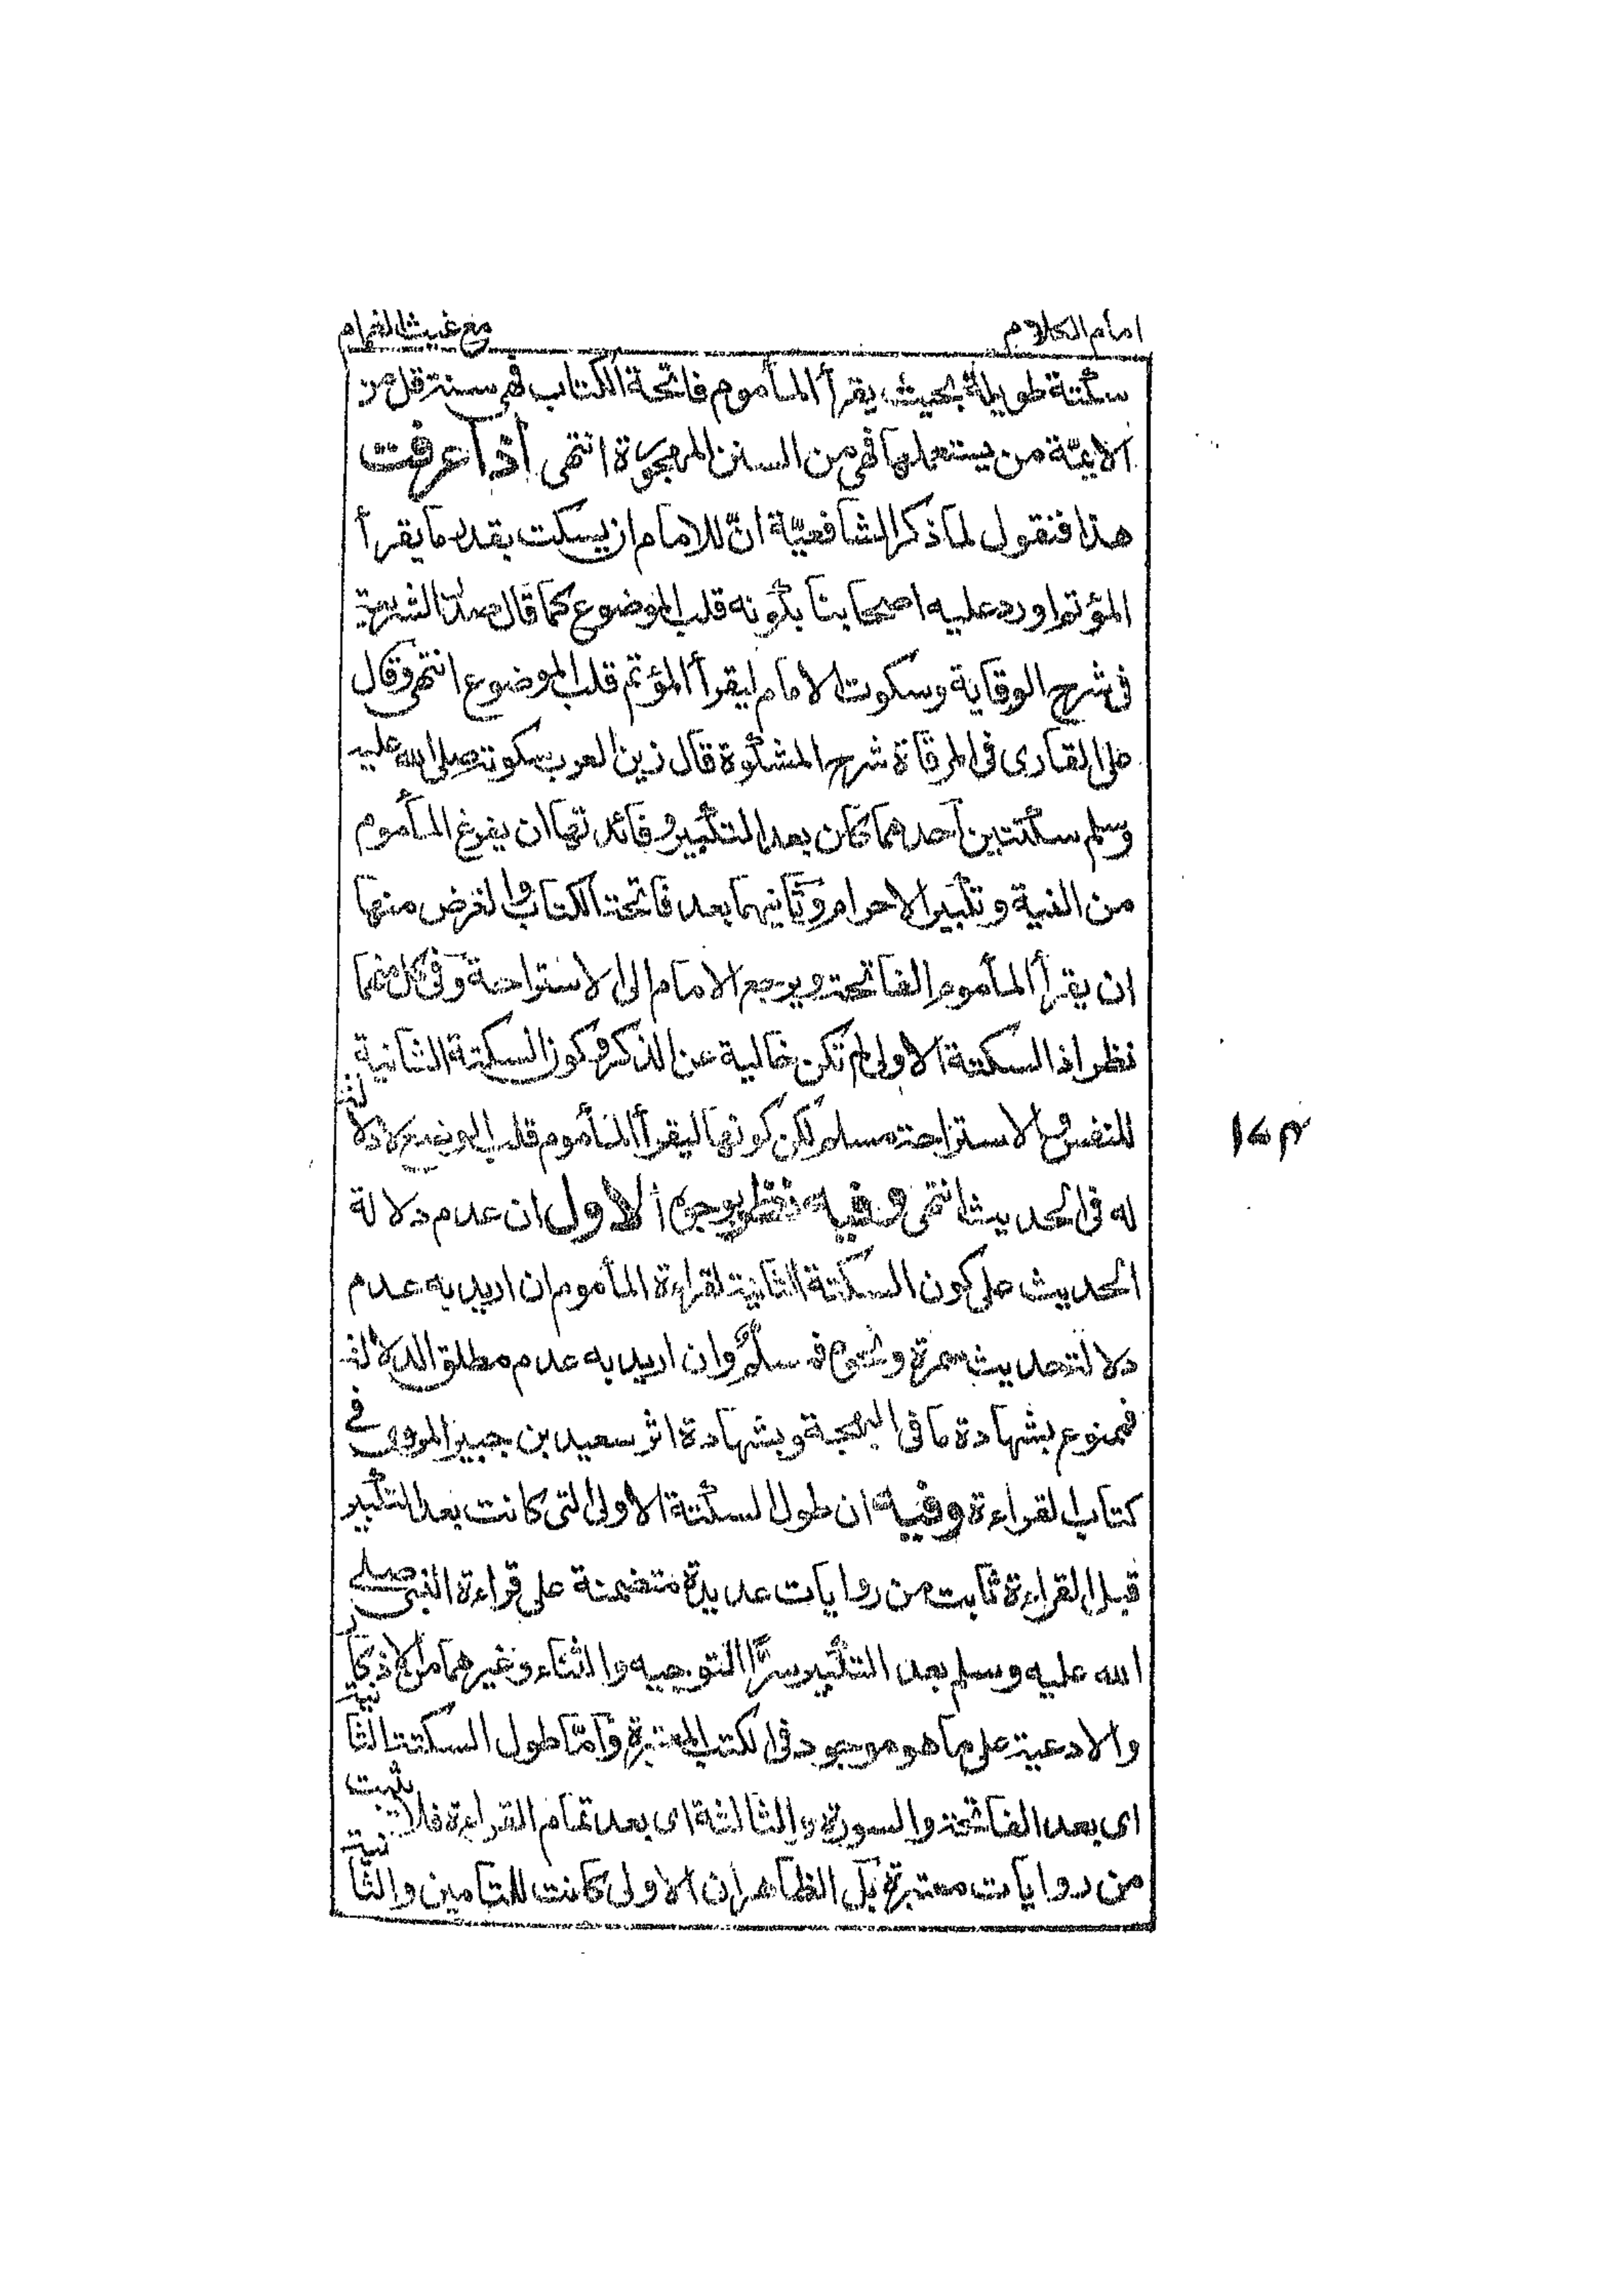 امام الكلام
مع غيث الغمام
سكتة طويلة بحيث يقرأ المأموم فاتحة الكتاب فهى سنة قل من
الائمّة من يستعملها فهى من السنن المهجورة انتهى اذا عرفت
هذا فنقول لما ذكر الشافعيّة انّ للامام ان يسكت بقدر ما يقرأ
المؤتم اورد عليه اصحابنا بكونه قلب الموضوع كما قال صدر الشريعة
فى شرح الوقاية وسكوت الامام ليقرأ المؤتم قلب الموضوع انتهى وقال
على القارى فى المرقاة شرح المشكوة قال زين العرب سكوته صلى الله عليه
وسلم سكتتين احدهما كان بعد التكبير وفائدتها ان يفرغ المأموم
من النية وتكبير الاحرام وثانيهما بعد فاتحة الكتاب والغرض منها
ان يقرأ المأموم الفاتحة ويرجع الامام الى الاستراحة وفى كل منهما
نظر اذ السكتة الاولى لم تكن خالية عن الذكر وكون السكتة الثانية
للتنفس والاستراحة مسلم لكن كونها ليقرأ المأموم قلب الموضوع لا دلالة
له فى الحديث انتهى وفيه نظر بوجوه الاول ان عدم دلالة
الحديث على كون السكتة الثانية لقراءة المأموم ان اريد به عدم
دلالة حديث سمرة ونحوه فمسلم وان اريد به عدم مطلق الدلالة
فممنوع بشهادة ما فى البهجة وبشهادة اثر سعيد بن جبير المروى فى
كتاب القراءة وفيه ان طول السكتة الاولى التى كانت بعد التكبير
قبل القراءة ثابت من روايات عديدة متضمنة على قراءة النبى صلى
الله عليه وسلم بعد التكبير سرًّا التوجيه والثناء وغيرهما من الاذكار
والادعية على ما هو موجود فى الكتب المعتبرة وامّا طول السكتة الثانية
اى بعد الفاتحة والسورة والثالثة اى بعد تمام القراءة فلا يثبت
من روايات معتبرة بل الظاهر ان الاولى كانت للتامين والثانية
۱۷۳